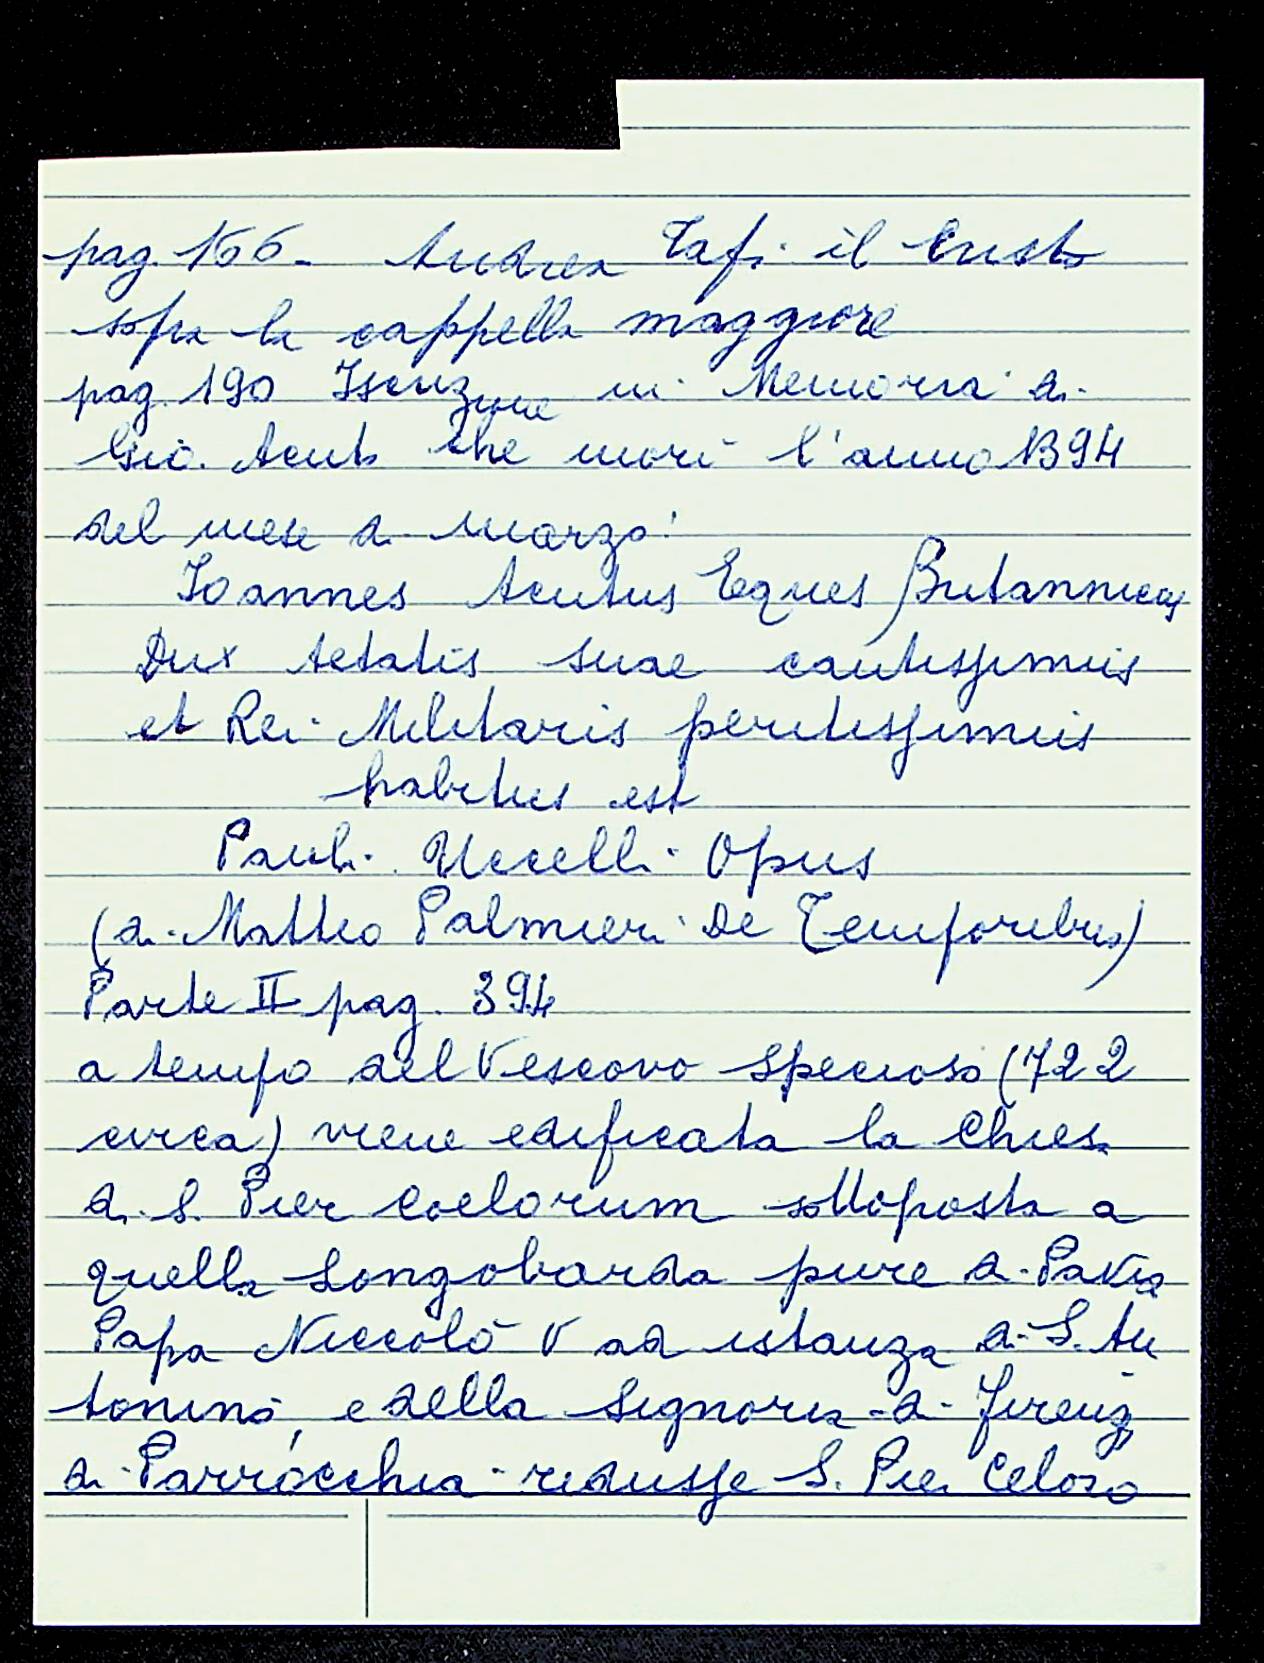 pag. 166 - Andrea Tafi il Cristo
sopra la cappella maggiore
pag. 190 Iscrizione in Memoria di
Gio. Acuto che morì l'anno 1394
del mese di marzo:
Ioannes Acutus Eques Britannicus
Dux Aetatis suae cautissimus
et Rei Militaris peritissimus
habitus est
Pauli Uccelli Opus
(di Matteo Palmieri De Temporibus)
Parte II pag. 394
a tempo del Vescovo Specioso (722
circa) viene edificata la Chiesa
di S. Pier Coelorum sottoposta a
quella Longobarda pure di Pavia
Papa Niccolò V ad istanza di S. An
tonino, e della Signoria di Firenze
di Parrocchia ridusse S. Pier Celoro